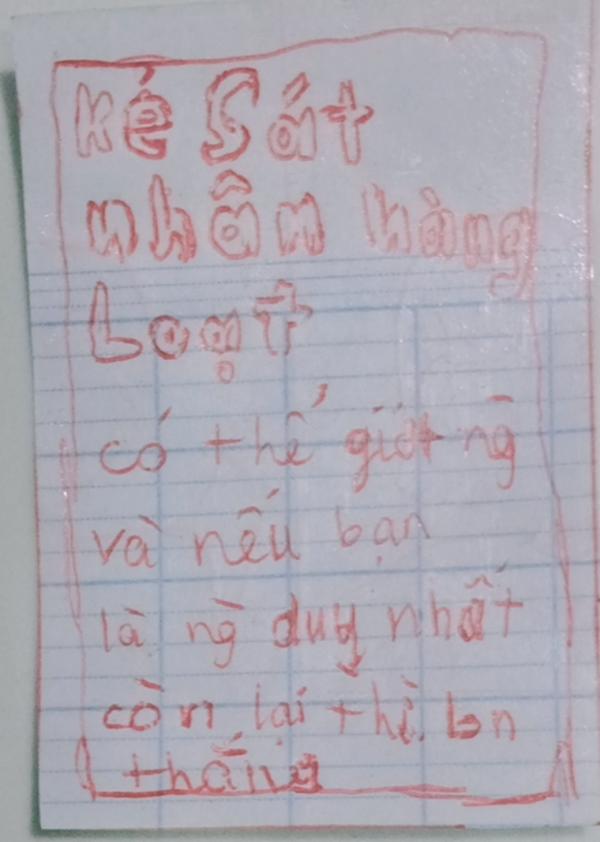 Kẻ Sát
nhân hàng
Loạt
có thể giết ng̀
và nếu bạn
là ng̀ duy nhất
còn lại thì bn
thắng